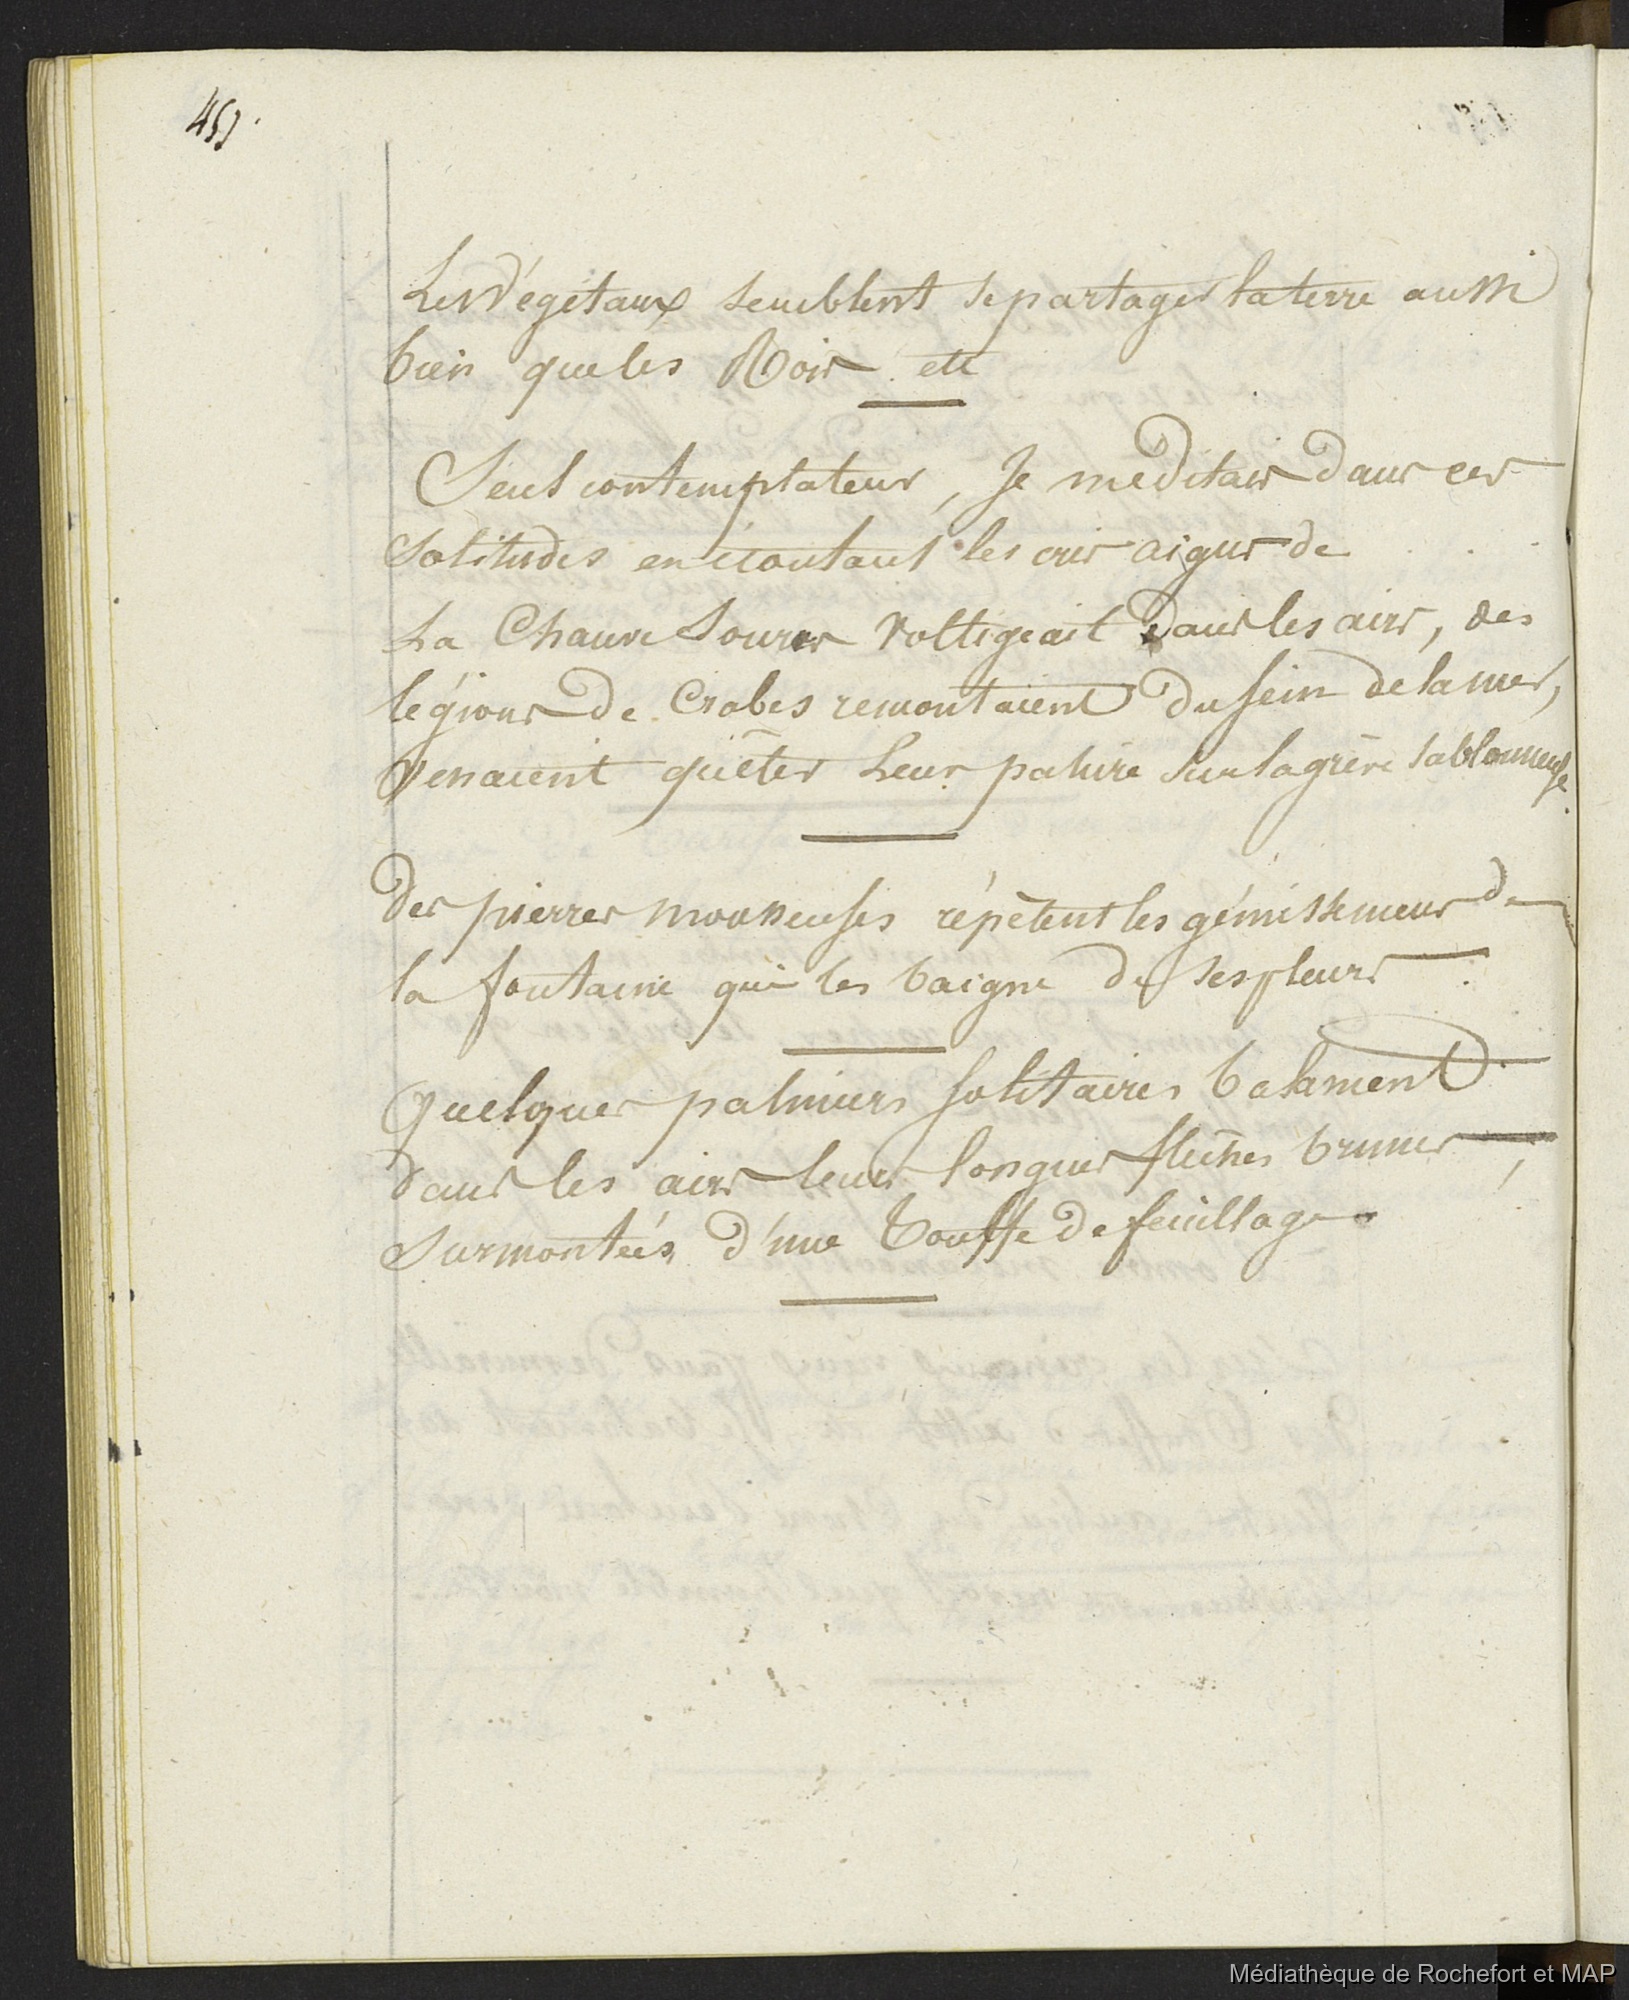 Les Végétaux semblent se partager la terre aussi
bien que les Rois etc
Seul contemplateur, Je méditais dans ces
solitudes en écoutant les cris aigus de
La Chauve Souris voltigeait dans les airs, des
légions de Crabes remontaient du sein de la mer,
venaient quêter Leur pature sur la grève sablonneuse.
Des pierres mousseuses répètent les gémissemens de
la fontaine qui les baigne de ses pleurs
Quelques palmiers solitaires balancent
dans les airs leurs longues flèches brunes,
Surmontées d'une touffe de feuillage
Médiathèque de Rochefort et MAP